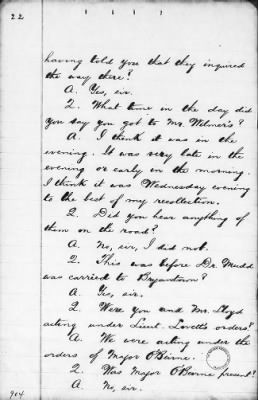 22
having told you that they inquired
the way there?
A. Yes, sir.
Q. What time in the day did
you say you got to Mr. Wilmer's?
A. I think it was in the
evening. It was very late in the
evening or early in the morning.
I think it was Wednesday evening
to the best of my recollection.
Q. Did you hear anything of
them on the road?
A. No, sir, I did not.
Q. This was before Dr. Mudd
was carried to Bryantown?
A. Yes, sir.
Q. Were you and Mr. Lloyd
acting under Lieut. Lovett's orders?
A. We were acting under the
orders of Major O'Beirne.
Q. Was Major O'Beirne present?
A. No, sir.
904